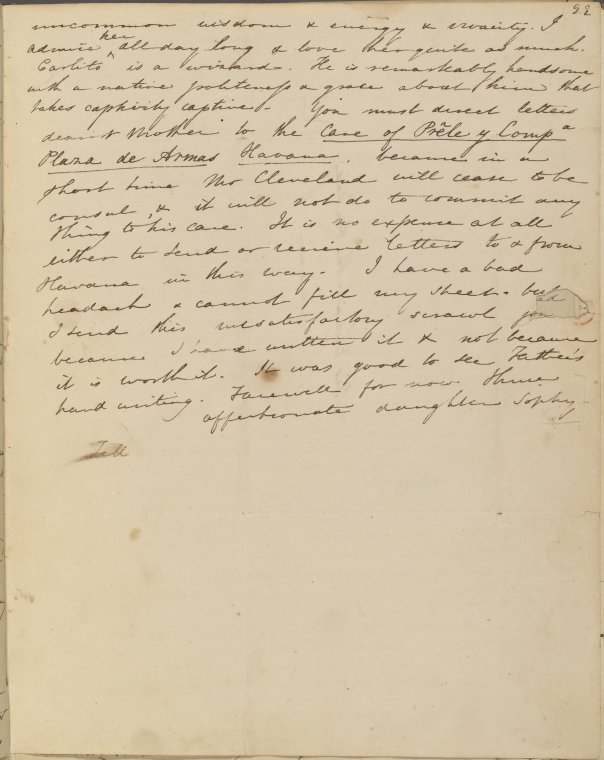 92
uncommon wisdom & energy & vivacity. I
her
admire ^ all day long & love her quite as much.
Carlito is a wizard. He is remarkably handsome
with a native politeness & grace about him that
takes captivity captive. You must direct letters
dearest Mother to the Care of Prẽle y Comp a
Plaza de Armas Havana, because in a
short time Mr Cleveland will cease to be
consul, & it will not do to commit any
thing to his care. It is no expense at all
either to send or recieve letters to & from
Havana in this way. I have a bad
headach & cannot fill my sheet. but
I send this unsatisfactory scrawl
because I have written it & not because
it is worth it. It was good to see Father's
hand writing. Farewell for now. Thine
affectionate daughter Sophy